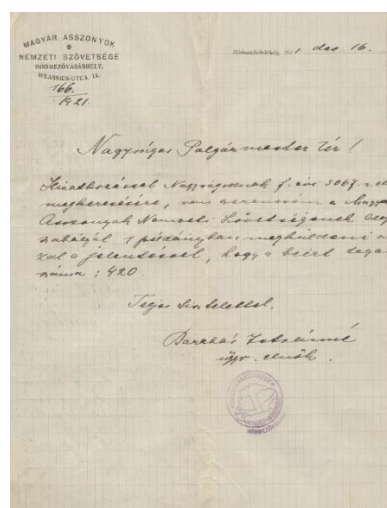 MAGYAR ASSZONYOK
NEMZETI SZÖVETSÉGE
HÓDMEZŐVÁSÁRHELY,
WLASSICS-UTCA 14.
166.
1921.
Hódmezővásárhely, 1921 dec 16.
Nagyságos Polgármester Úr!
Hivatkozással Nagyságodnak f. évi 3067
megkeresésére, van szerencsém a Magyar
Asszonyok Nemzeti Szövetségének
1 példányban megküldeni
azzal a jelentéssel, hogy a beírt
száma: 420.
Teljes tisztelettel
Istvánné
ügyv. elnök.